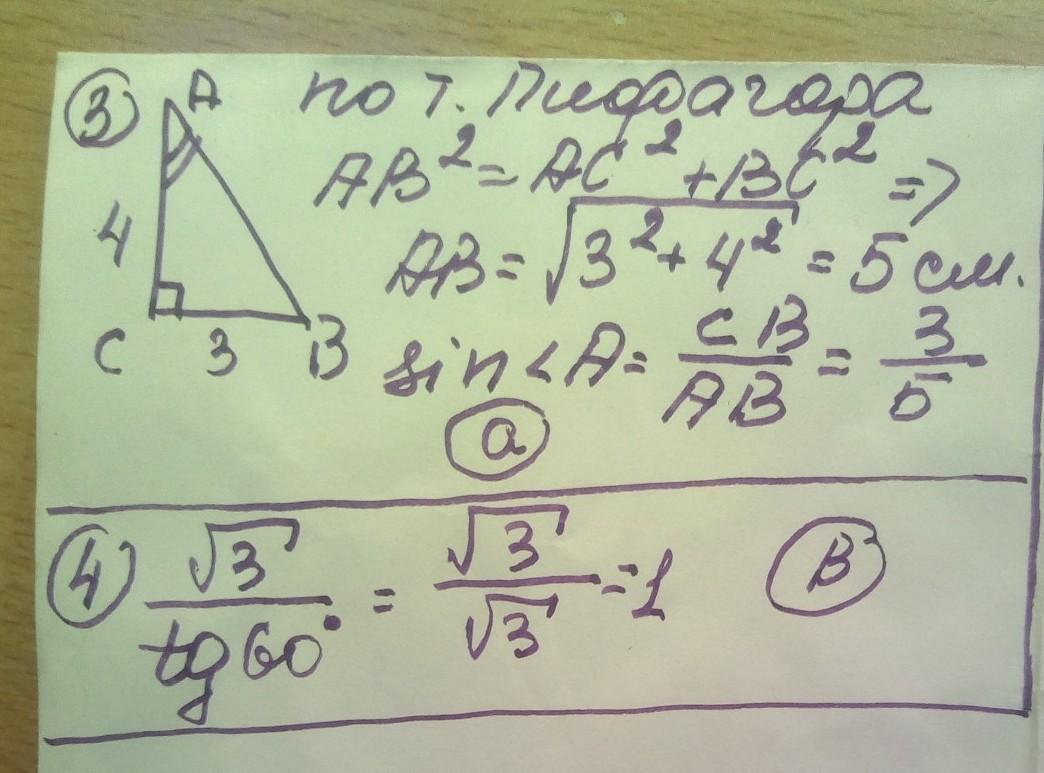 3 A по т. Пифагора
AB² = AC² + BC² =>
4 AB = √3² + 4² = 5 см.
C 3 B sin<A = CB/AB = 3/5
а
4 √3/tg60° = √3/√3 = 1 В